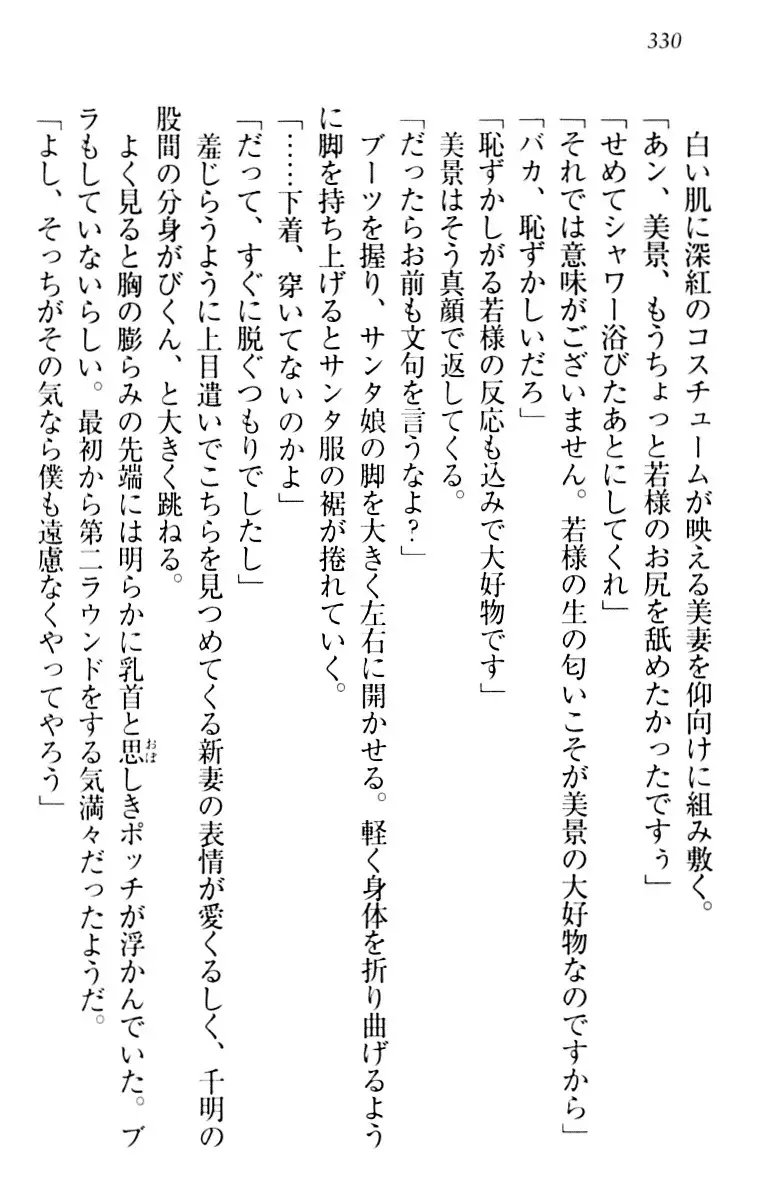 330
白い肌に深紅のコスチュームが映える美妻を仰向けに組み敷く。
「あン、美景、もうちょっと若様のお尻を舐めたかったですぅ」
「せめてシャワー浴びたあとにしてくれ」
「それでは意味がございません。若様の生の匂いこそが美景の大好物なのですから」
「バカ、恥ずかしいだろ」
「恥ずかしがる若様の反応も込みで大好物です」
美景はそう真顔で返してくる。
「だったらお前も文句を言うなよ？」
ブーツを握り、サンタ娘の脚を大きく左右に開かせる。軽く身体を折り曲げるよう
に脚を持ち上げるとサンタ服の裾が捲れていく。
「……下着、穿いてないのかよ」
「だって、すぐに脱ぐつもりでしたし」
羞じらうように上目遣いでこちらを見つめてくる新妻の表情が愛くるしく、千明の
股間の分身がびくん、と大きく跳ねる。
よく見ると胸の膨らみの先端には明らかに乳首と思しきポッチが浮かんでいた。ブ
おぼ
ラもしていないらしい。最初から第二ラウンドをする気満々だったようだ。
「よし、そっちがその気なら僕も遠慮なくやってやろう」